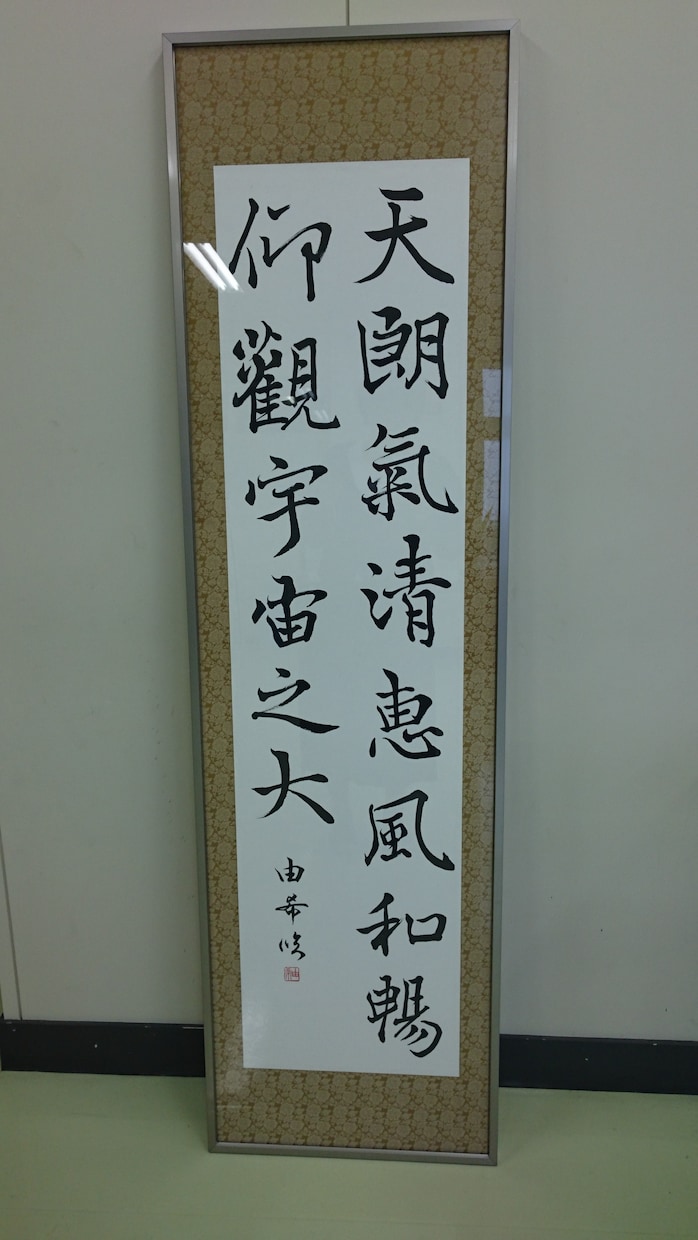 天朗氣清惠風和暢
仰觀宇宙之大
由希咲